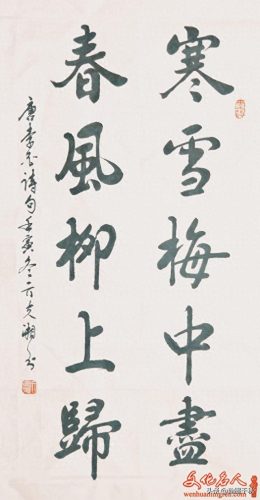 寒雪梅中盡
春風柳上歸
唐李白詩句壬寅冬二方克湘书
文化名人
wenhuamingren.com